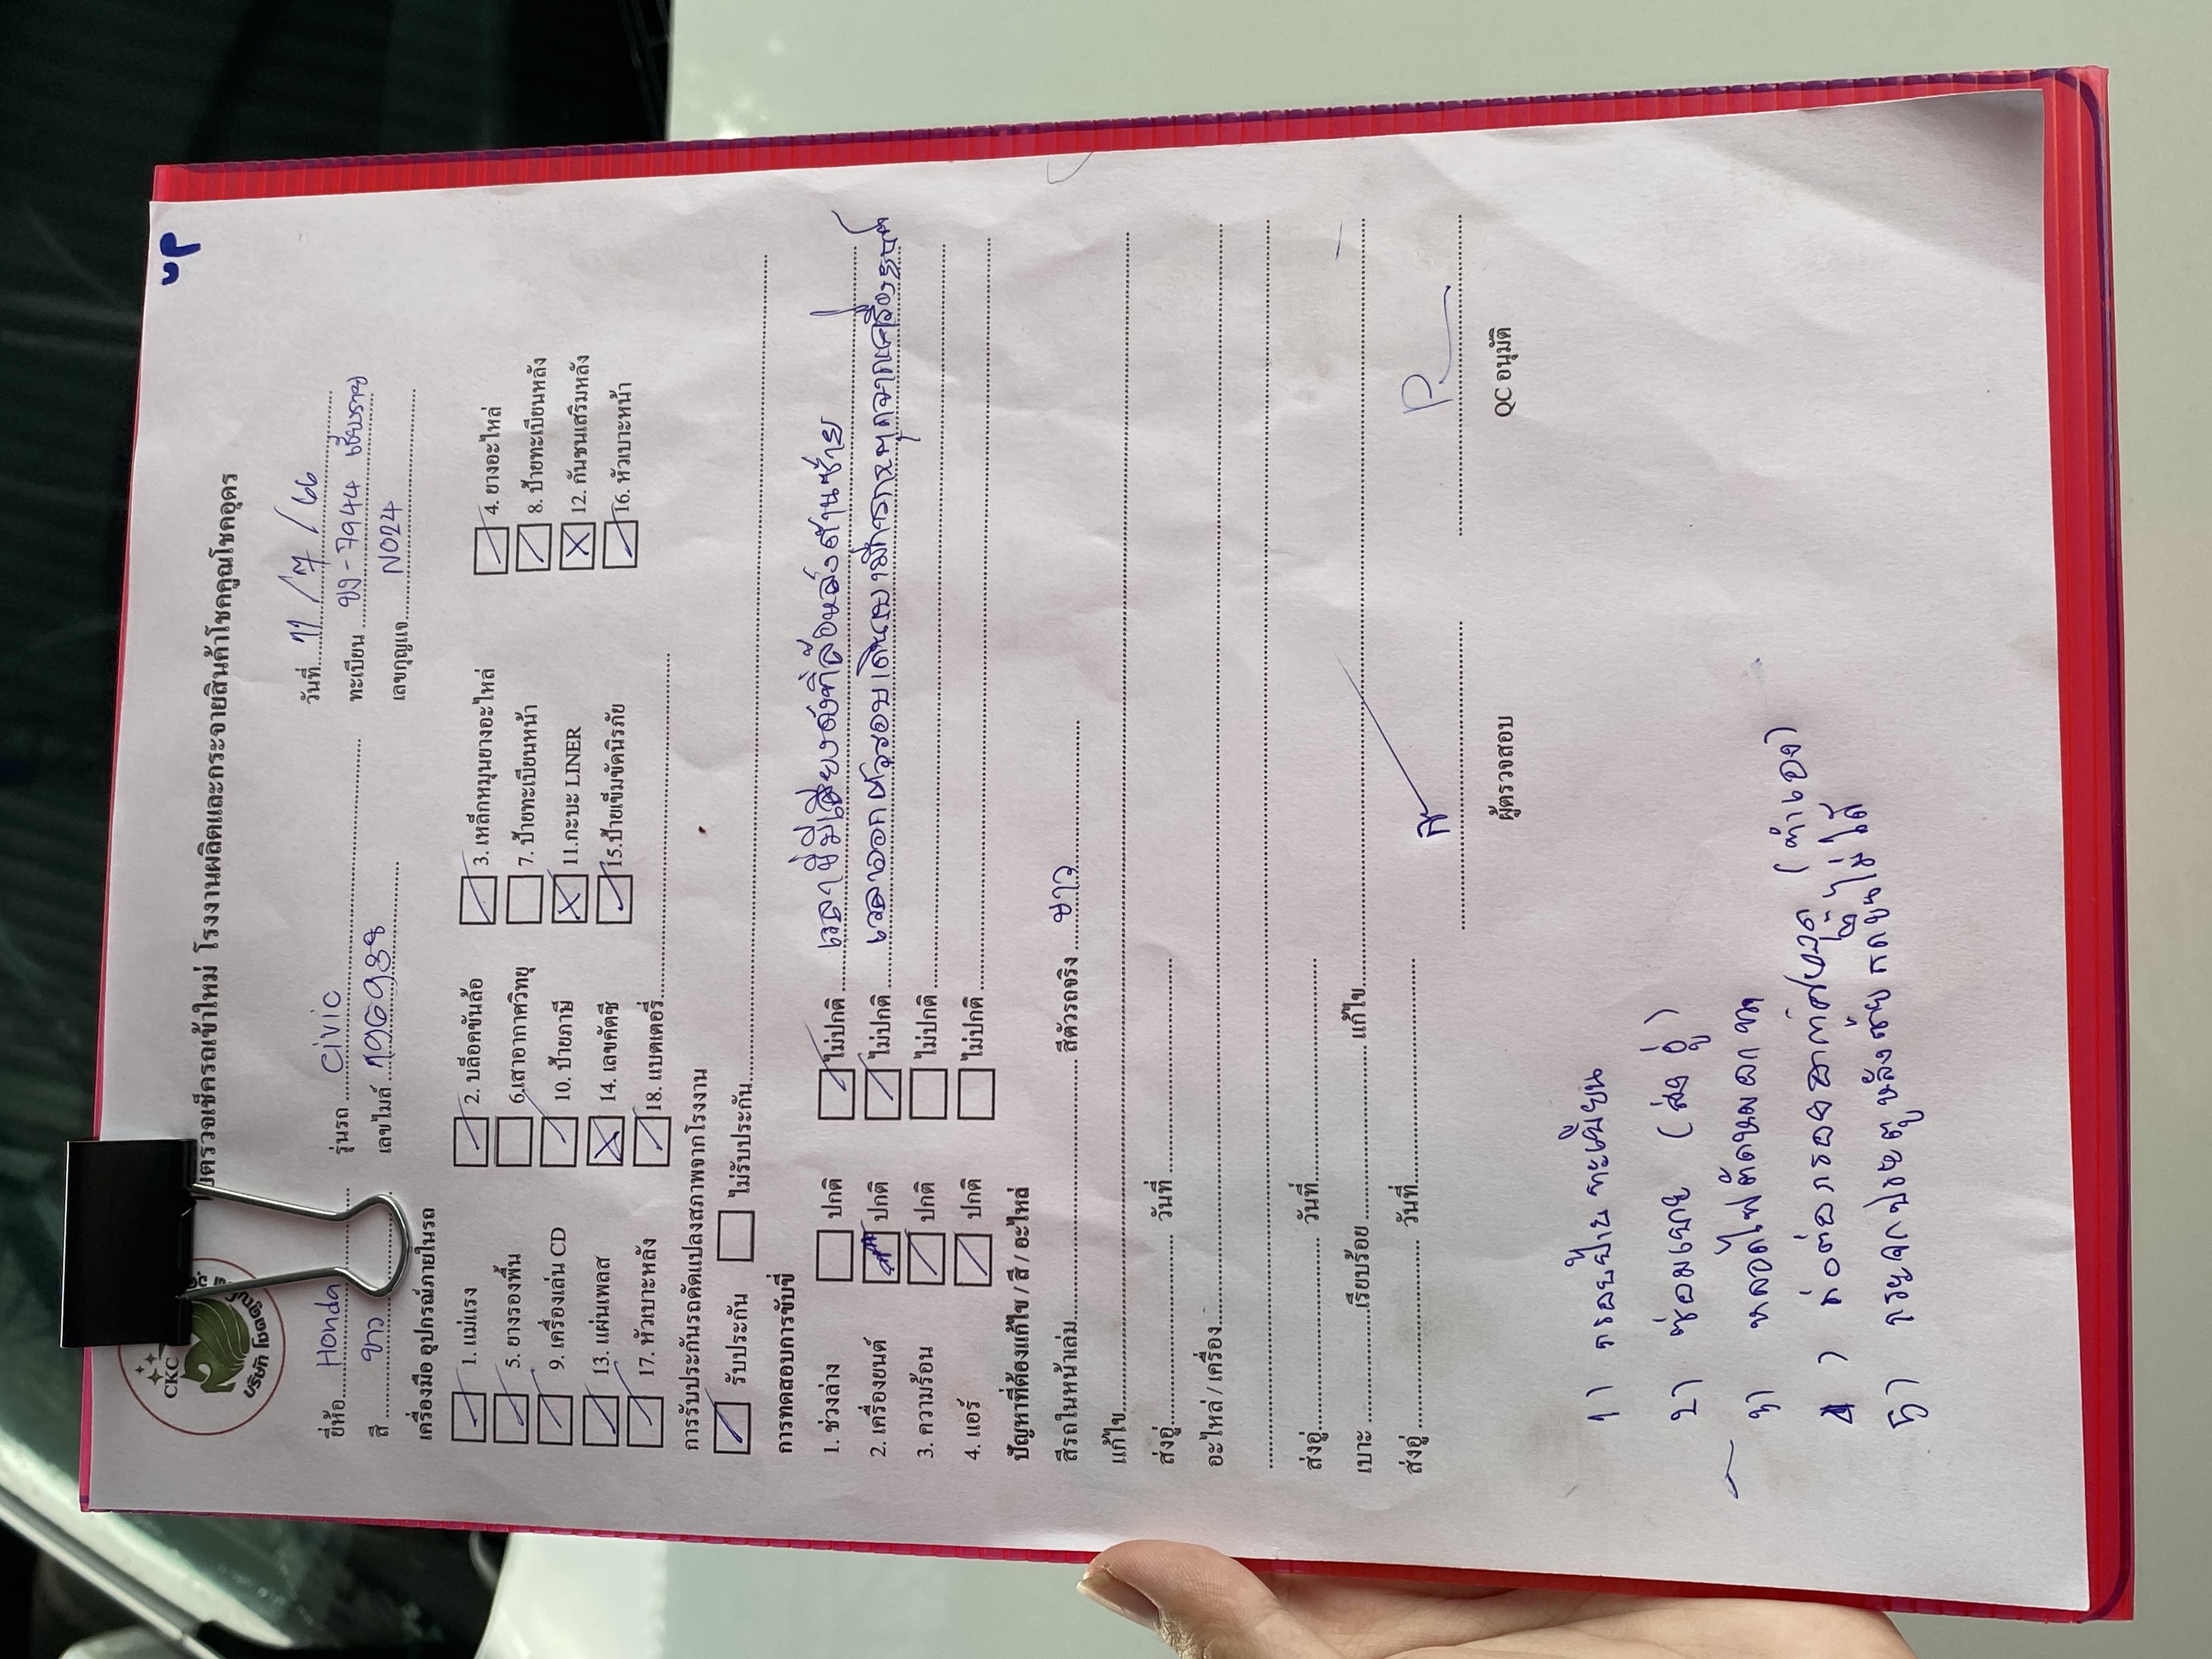 up
CKC
บริษัท โชคคูณโชค
ใบตรวจเช็ครถเข้าใหม่ โรงงานผลิตและกระจายสินค้าโชคคูณโชคอุดร
วันที่ 11/7/66
ยี่ห้อ Honda รุ่นรถ Civic ทะเบียน ขง-7944
สี ขาว เลขไมล์ เลขกุญแจ N024
เครื่องมือ อุปกรณ์ภายในรถ
1. แม่แรง 2. บล็อคขันล้อ 3. เหล็กหมุนยางอะไหล่ 4. ยางอะไหล่
5. ยางรองพื้น 6.เสาอากาศวิทยุ 7. ป้ายทะเบียนหน้า 8. ป้ายทะเบียนหลัง
9. เครื่องเล่น CD 10. ป้ายภาษี 11.กะบะ LINER 12. กันชนเสริมหลัง
13. แผ่นเพลส 14. เลขคัตซี 15.ป้ายเข็มขัดนิรภัย 16. หัวเบาะหน้า
17. หัวเบาะหลัง 18. แบตเตอรี่
การรับประกันรถดัดแปลงสภาพจากโรงงาน
รับประกัน ไม่รับประกัน
การทดสอบการขับขี่
1. ช่วงล่าง ปกติ ไม่ปกติ เวลาขับมีเสียงดังที่ล้อหลังด้านซ้าย
2. เครื่องยนต์ ปกติ ไม่ปกติ เวลาออกตัวรอบเดินเบามีการกระตุกจากเครื่องยนต์
3. ความร้อน ปกติ ไม่ปกติ
4. แอร์ ปกติ ไม่ปกติ
ปัญหาที่ต้องแก้ไข / สี / อะไหล่
สีรถในหน้าเล่ม สีตัวรถจริง ขาว
แก้ไข
ส่งอู่ วันที่
อะไหล่ / เครื่อง
ส่งอู่ วันที่
เบาะ เรียบร้อย แก้ไข
ส่งอู่ วันที่
ผู้ตรวจสอบ QC อนุมัติ
1) กรอบป้ายทะเบียน
2) ซ่อมเบาะ (ส่งอู่)
3) หลอดไฟตัดหมอกขาด
4) ท่อต่อกรองอากาศขาด (ทำเอง)
5) กระจกประตูหลังซ้ายกดขึ้นไม่ได้